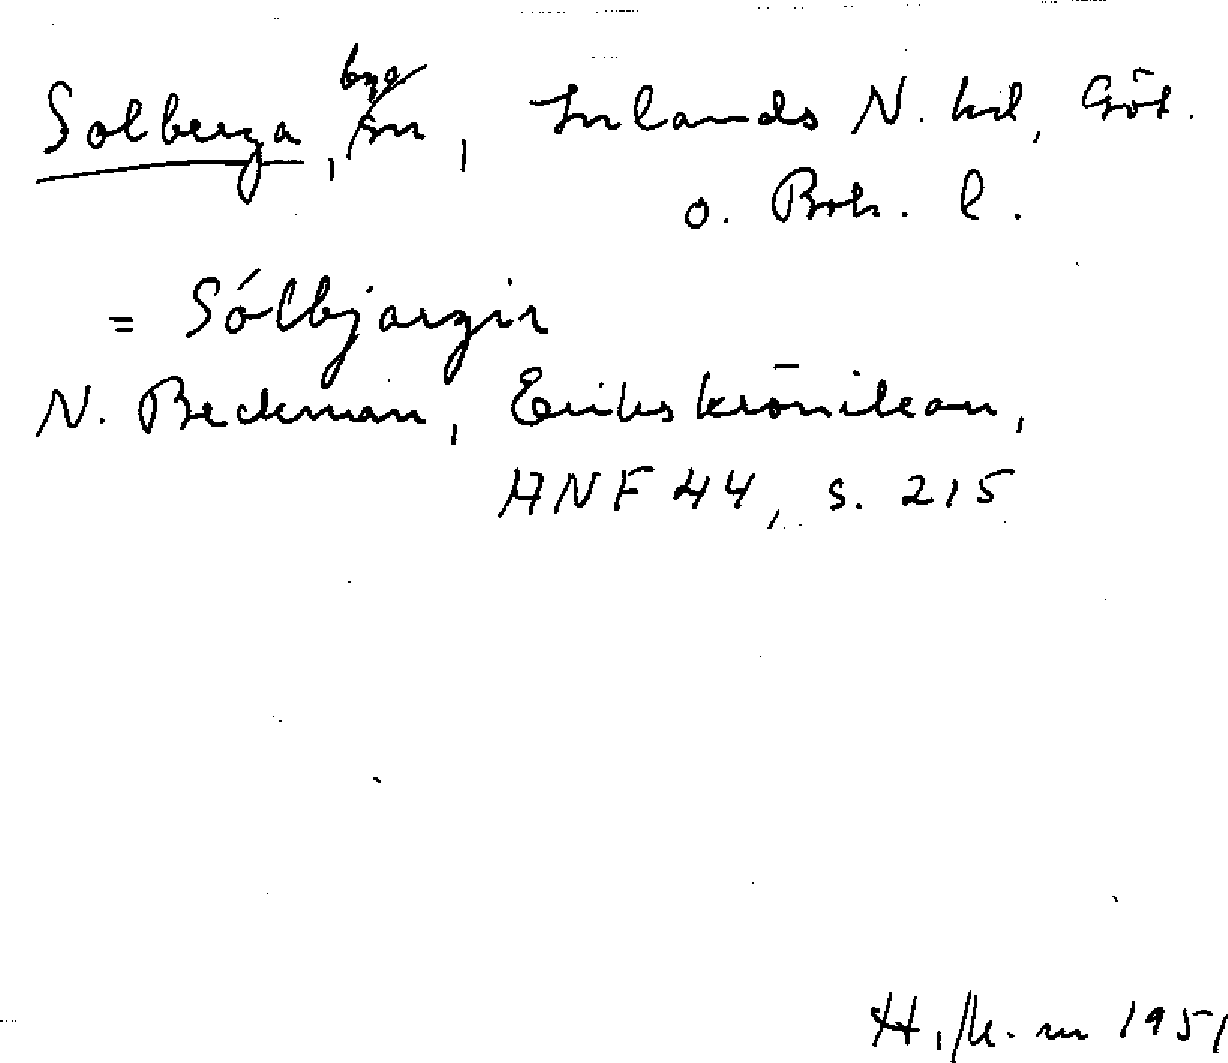 Solberga, bya/sn, Inlands N. hd, Göt.
o. Boh. l.
= Sólbjargir
N. Beckman, Erikskrönikan,
ANF 44, s. 215
1951